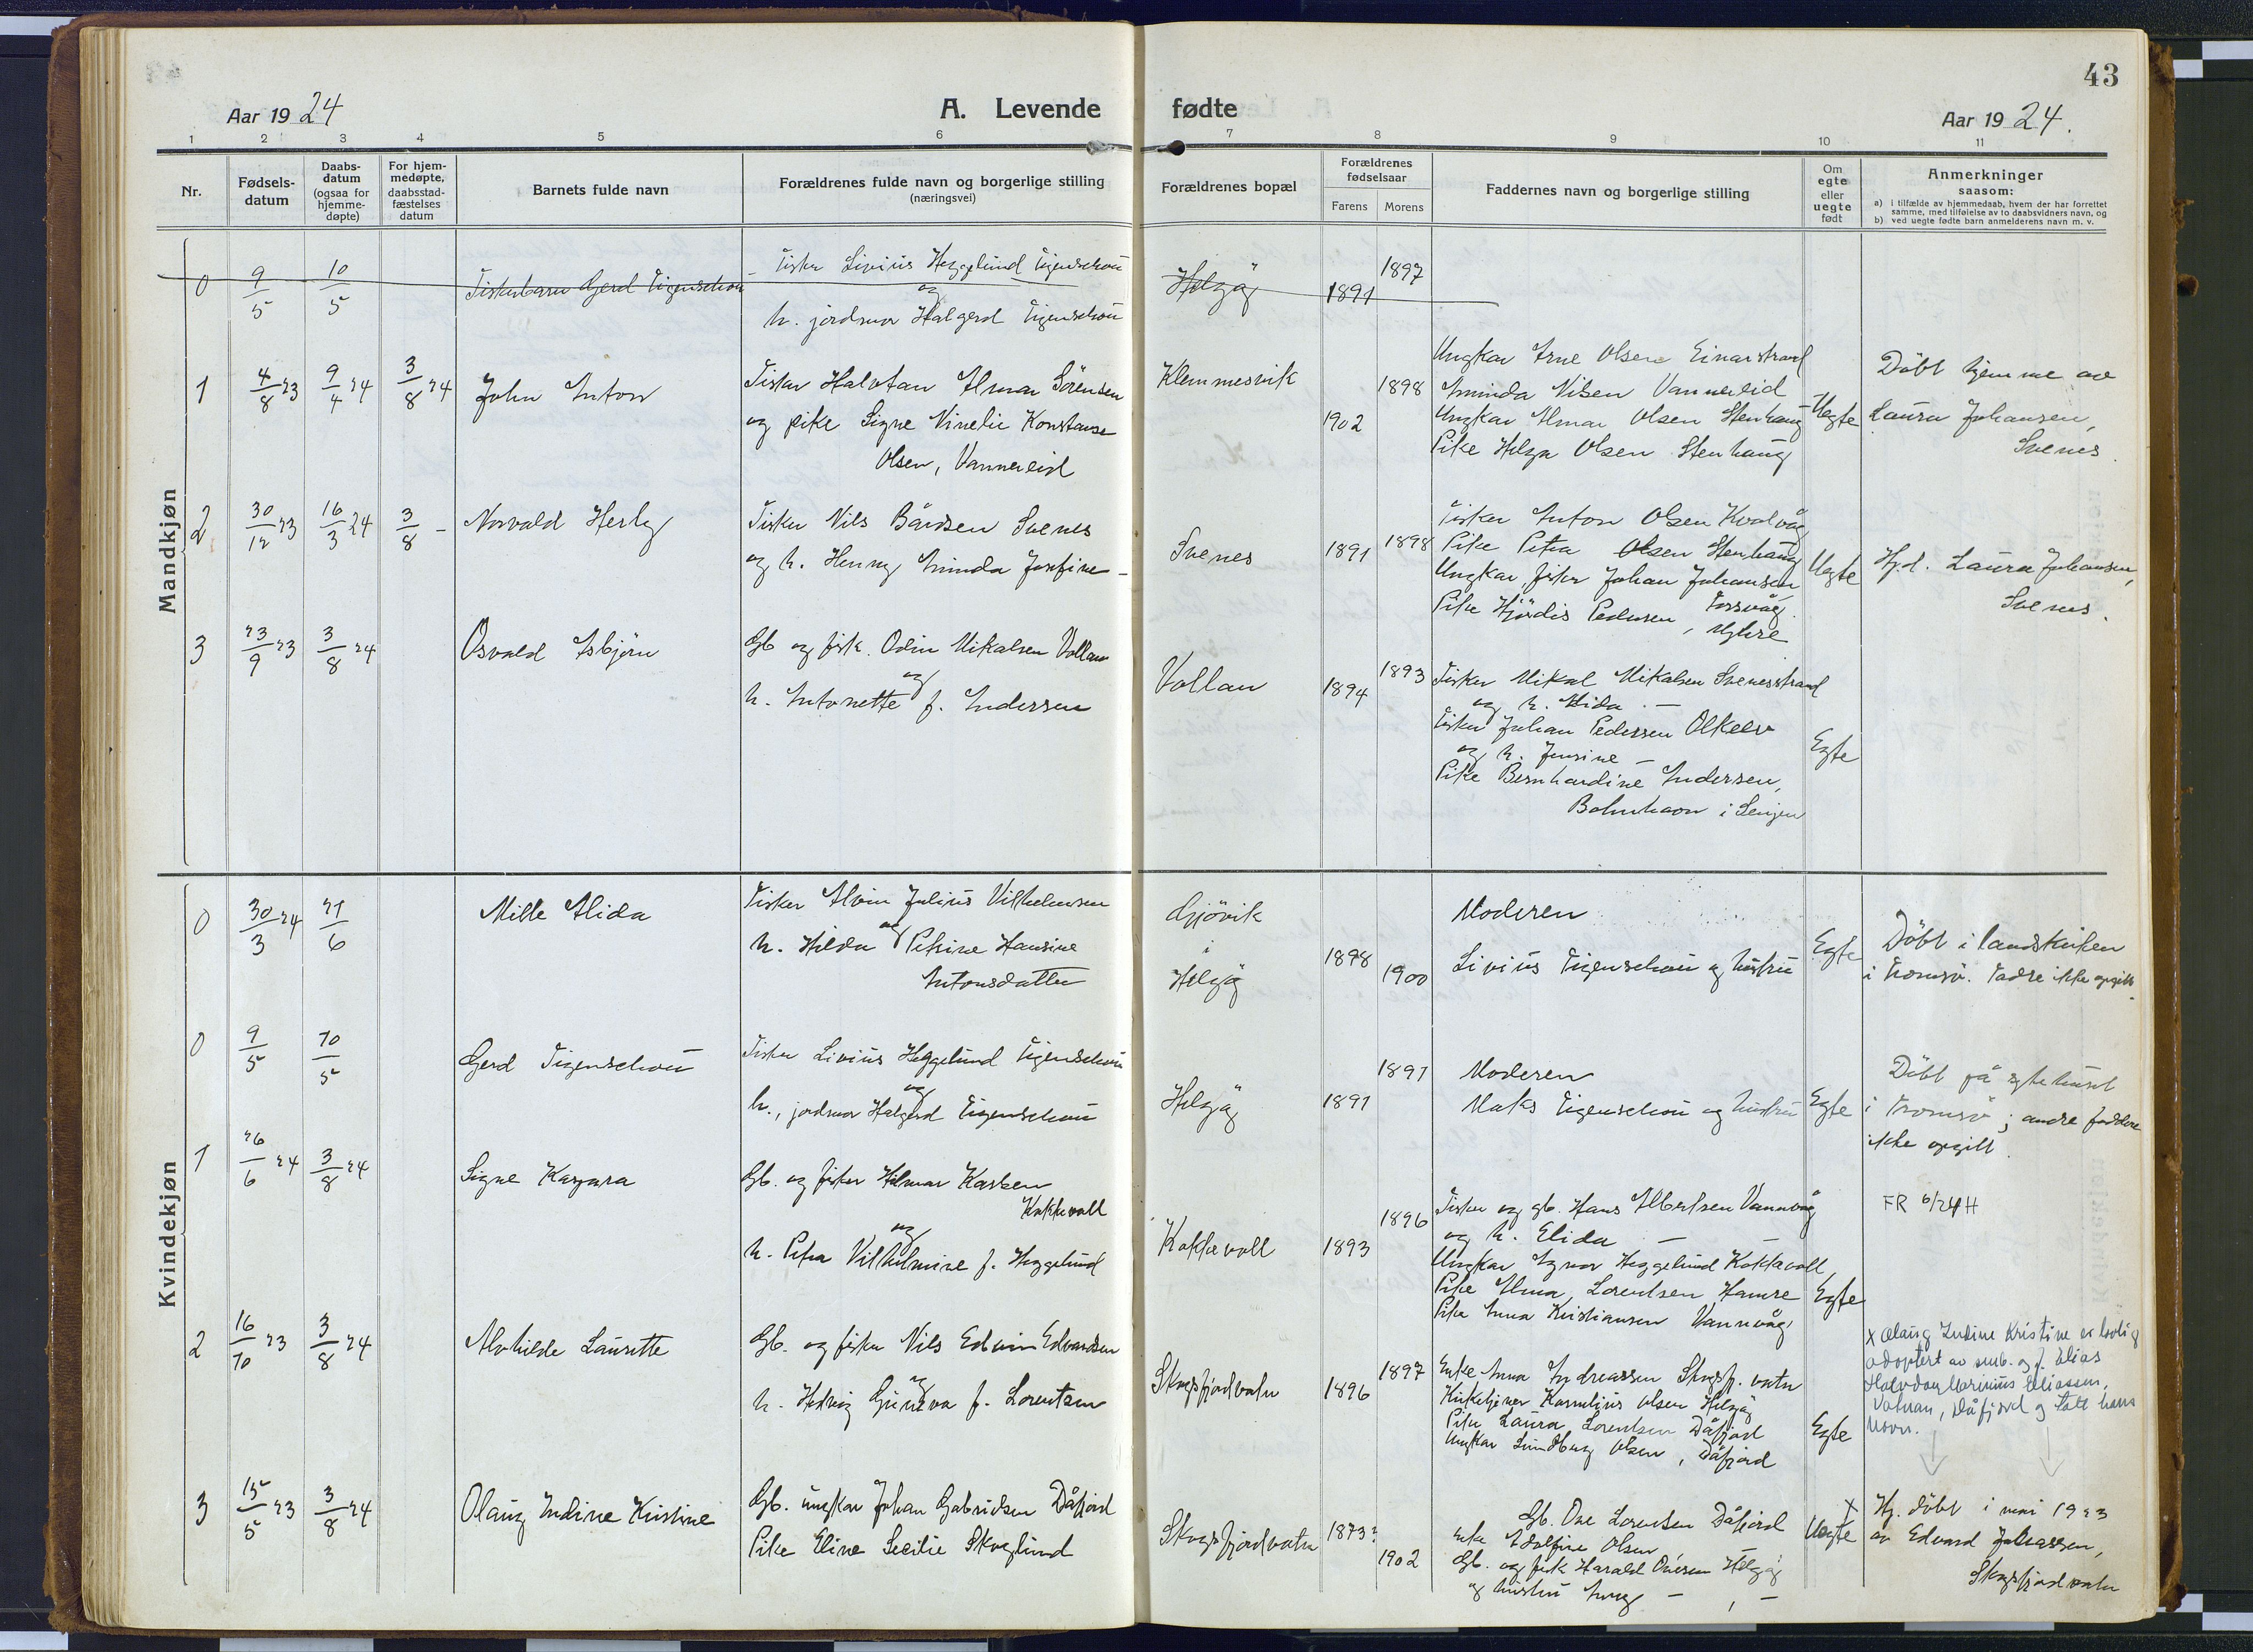 43
Aar 1924
A. Levende fødte
Aar 1924.
1 2 3 4 5 6 7 8 9 10 11
Nr.
Fødsels-
datum
Daabs-
datum
(ogsaa for
hjemme-
døpte)
For hjem-
medøpte,
daabsstad-
fæstelses
datum
Barnets fulde navn
Forældrenes fulde navn og borgerlige stilling
(næringsvei)
Forældrenes bopæl
Forældrenes
fødselsaar
Farens Morens
Faddernes navn og borgerlige stilling
Om
egte
eller
uegte
født
Anmerkninger
saasom:
a) i tilfælde av hjemmedaab, hvem der har forrettet
samme, med tilføielse av to daabsvidners navn, og
b) ved uegte fødte barn anmelderens navn m. v.
Mandkjøn
0 9/5 10/5 Fiskerbarn Gerd Figenschou
Fisker Livius Heggelund Figenschou
og
h. jordmor Halgerd Figenschou
Helgøy 1891 1897
1 4/8 23 9/4 24 3/8 24 John Anton
Fisker Halvtan Almar Sörensen
og pike Signe Vinelie Konstanse
Olsen, Vannereid
Klemmesvik 1902 1898
Ungkar Arne Olsen Einarstrand
Aminda Nilsen Vannereid
Ungkar Almar Olsen Stenhaug
Pike Helga Olsen Stenhaug
Uegte
Döbt hjemme av
Laura Johansen,
Svenes.
2 30/12 23 16/3 24 3/8 - Norvald Herly
Fisker Nils Bårdsen Svenes
og h. Henny Aminda Josefine -
Svenes 1891 1898
Fisker Anton Olsen Kvalvåg
Pike Petra Olsen Stenhaug
Ungkar, fisker Johan Johansen
Torsvåg.
Pike Hjördis Pedersen, Mykre
Uegte
Hj.d. Laura Johansen,
Svenes.
3 23/9 23 3/8 24 Osvald Asbjörn
Gb og fisk. Odin Mikalsen Vollan
og
h. Antonette f. Andersen
Vollan 1894 1893
Fisker Mikal Mikalsen Svenesstrand
og h. Alida -
Fisker Johan Pedersen Olkeelv
og h. Jensine -
Pike Bernhardine Andersen,
i Senjen
Egte
Kvindekjøn
0 30/3 24 21/6 Mille Alida
Fisker Alvin Julius Vilhelmsen
og
h. Hilda Petrine Hansine
Antonsdatter
Gjövik
i
Helgøy
1898 1900
Moderen
Livius Figenschou og hustru
Egte
Döbt i landskirken
i Tromsö. Fadre ikke opgitt.
0 9/5 10/5 Gerd Figenschou
Fisker Livius Heggelund Figenschou
og
h., jordmor Halgerd Figenschou
Helgøy 1891 1897
Moderen
Maks Figenschou og hustru
Egte
Döbt på sykehuset
i Tromsö; andre faddere
ikke opgitt.
1 26/6 24 3/8 24 Signe Kaspara
Gb. og fisker Hilmar Karlsen
Kokkevoll
og
h. Petra Vilhelmine f. Heggelund
Kokkevoll 1893 1896
Fisker og gb. Hans Albertsen Vannvåg
og h. Elida -
Ungkar Agnar Heggelund Kokkevoll
Pike Alma Lorentsen Hamre
Pike Anna Kristiansen Vannvåg
Egte
FR 6/24 H
2 16/10 23 3/8 24 Alvhilde Laurette
Gb. og fisker Nils Edvin Edvardsen
og
h. Hedvig Guneva f. Lorentsen
Skogsfjordvatn 1896 1897
Enke Anna Andreassen Skogsfj. vatn
Kirketjener Kornelius Olsen Helgøy
Pike Laura Lorentsen Dåfjord
Ungkar Lundberg Olsen, Dåfjord
Egte
x Olaug Indine Kristine er lovlig
adoptert av småb. og f. Elias
Halvdan Marinius Eliassen,
Vatnan, Dåfjord og tatt hans
navn.
3 15/5 23 3/8 24 Olaug Indine Kristine
Gb. ungkar Johan Gabrielsen Dåfjord
Pike Eline Secilie Skoglund
Skogsfjordvatn 1873? 1902
Gb. Ove Lorentsen Dåfjord
Enke Adolfine Olsen -
Gb. og fisk Harald Ovesen Helgøy
og hustru -, -
x
Uegte
Hj. döbt i mai 1923
av Edvard Johansen,
Skogsfjordvatn